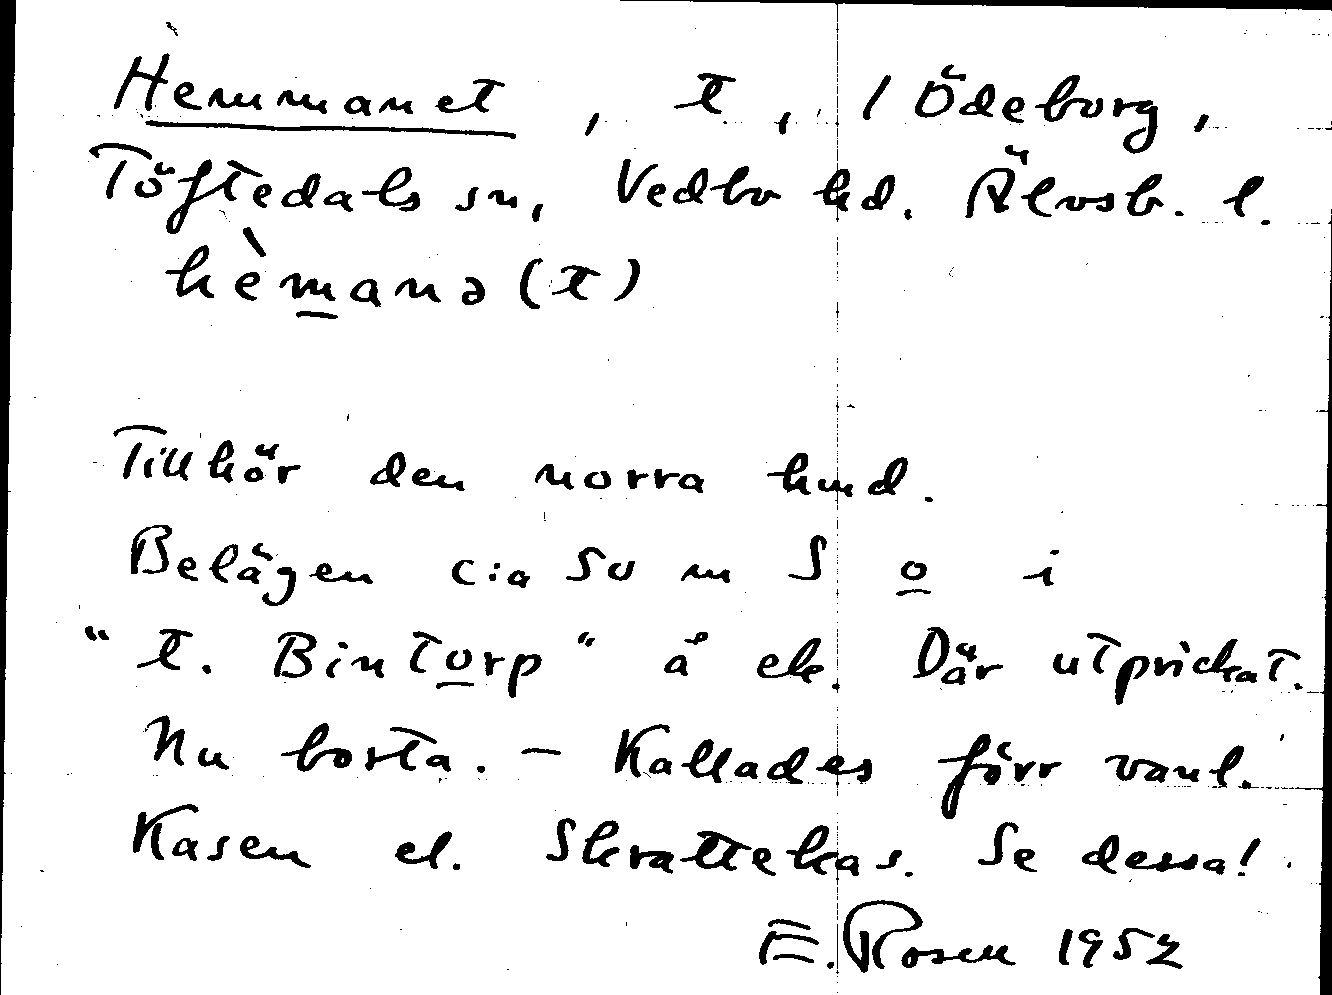 Hemmanet, t, i Ödeborg,
Töftedals sn, Vedbo hd. Älvsb. l.
hèmanə (t)
Tillhör den norra hmd.
Belägen c:a 50 m S o i
"t. Bintorp" å ek. Där utprickat.
Nu borta. – Kallades förr vanl.
Kasen el. Skrattekas. Se dessa!
E. Rosen 1952